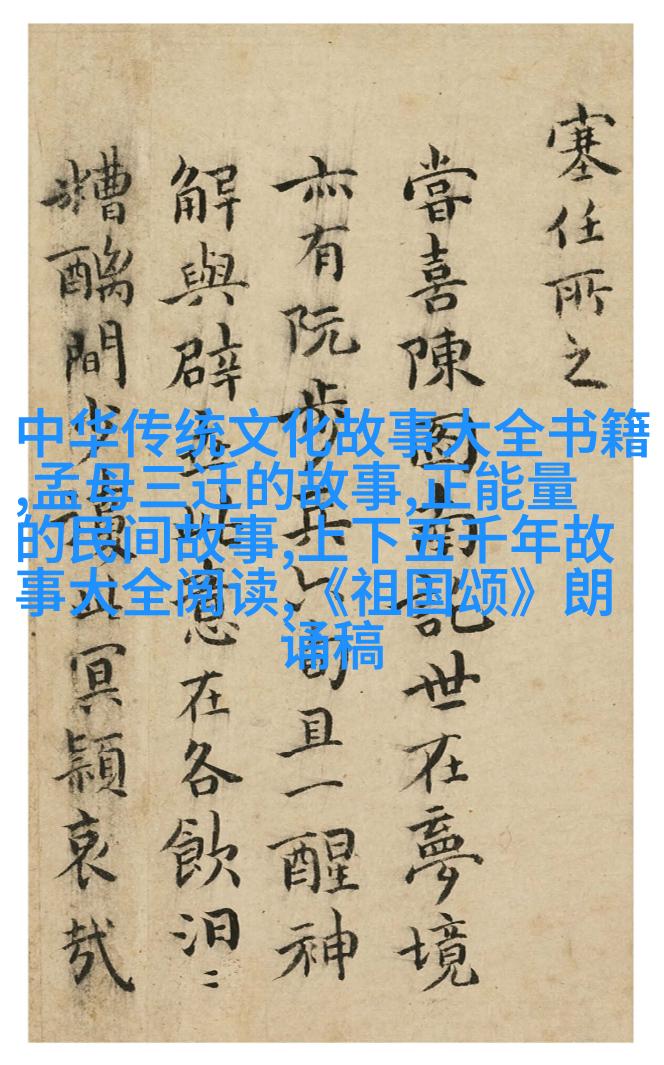 中华传统文化故事大全书籍
,孟母三迁的故事,正能量
的民间故事,上下五千年故
事大全阅读,《祖国颂》朗
诵稿
塞任所之
嘗喜陳圖南託世在夢境
亦有阮步兵六旬且一醒神
解與辟此意在各飲汩〻
糟醨間少此冥顥哀哉